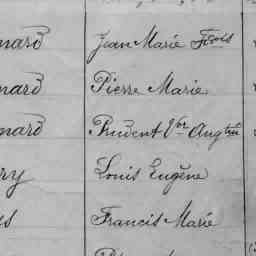 nard Jean Marie
nard Pierre Marie
nard Prudent Vor Augtin
ry Louis Eugène
es Francis Marie